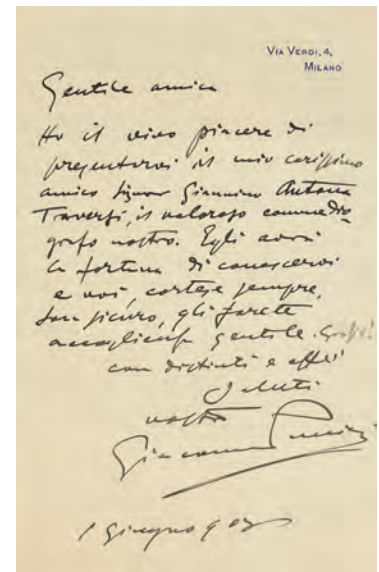 VIA VERDI, 4,
MILANO
Gentile amica
Ho il vivo piacere di
presentarvi il mio carissimo
amico Signor Giannino Antona
Traversi, il valoroso commedio
grafo nostro. Egli avrà
la fortuna di conoscervi
e voi, cortese sempre,
son sicuro, gli farete
accoglienza gentile. Grazie!
con distinti e affi
saluti
vostro
Giacomo Puccini
1 Giugno